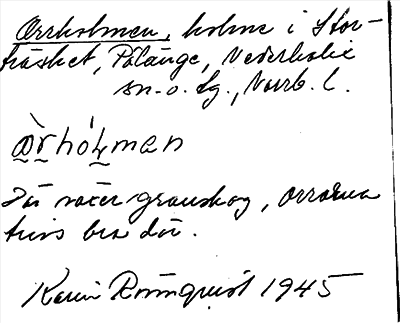 Orrholmen, holme i Stor-
träsket, Pålänge, Nederkalix
sn. o. tg., Norrb. l.
òrhól̥men
Där växer granskog, orrarna
trivs bra där.
Karin Rönnquist 1945